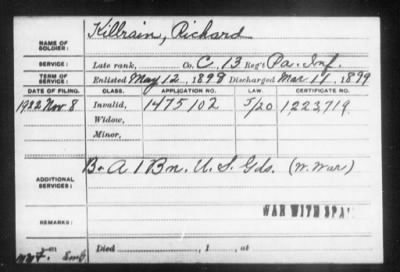 NAME OF SOLDIER: Killrain, Richard
SERVICE: Late rank, Co. C, 13 Reg't Pa. Inf.
TERM OF SERVICE: Enlisted May 12, 1898 Discharged Mar 11, 1899
DATE OF FILING. CLASS. APPLICATION NO. LAW. CERTIFICATE NO.
1922 Nov. 8 Invalid, 1475102 5/20 1,223,719.
Widow,
Minor,
ADDITIONAL SERVICES: B+A 1 Bn. U. S. Gds. (W. War)
WAR WITH SPA
REMARKS:
Died , 1 , at